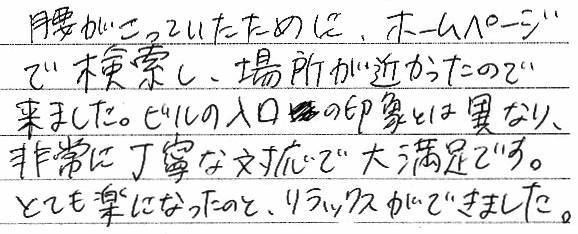 腰がこっていたために、ホームページ
で検索し、場所が近かったので
来ました。ビルの入口の印象とは異なり、
非常に丁寧な対応で大満足です。
とても楽になったのと、リラックスができました。